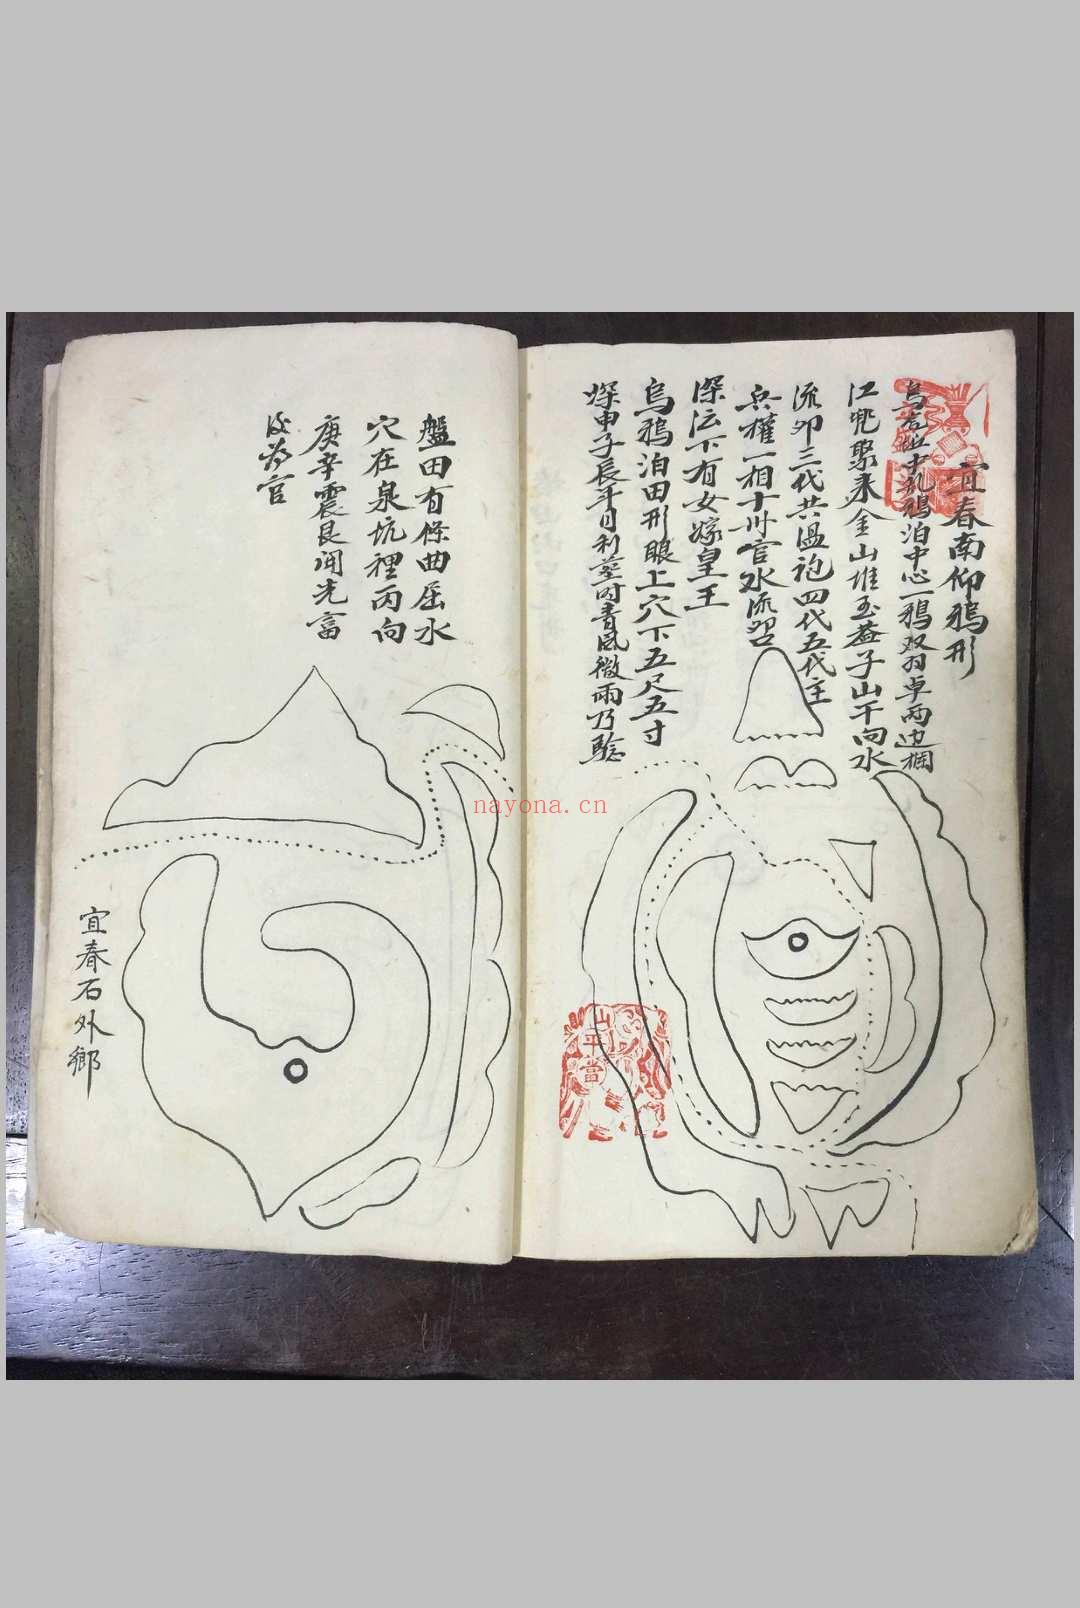 宜春南仰鴉形
烏石坵中孔鴉泊中心一鴉双羽卓两边攔
江児聚来金山堆玉盖子山干向水
流卯三代共温袍四代五代主
兵權一相十卅官水流
深法下有女嫁皇王
烏鴉泊田形眼上穴下五尺五寸
深申子辰年月利塟时青风微雨乃騐
盤田有條曲屈水
穴在泉坑裡丙向
庚辛震艮闹光富
官
宜春石外鄉
山平當
nayona.cn